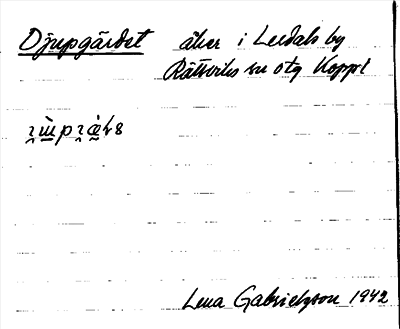 Djupgärdet åker i Lerdals by
Rättviks sn otg Koppl
Lena Gabrielsson 1942